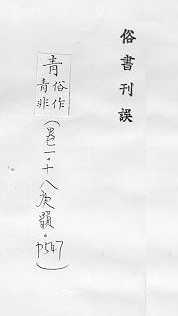 俗書刊誤
青
俗作
青非
(卷一.十八庚韻.p547)